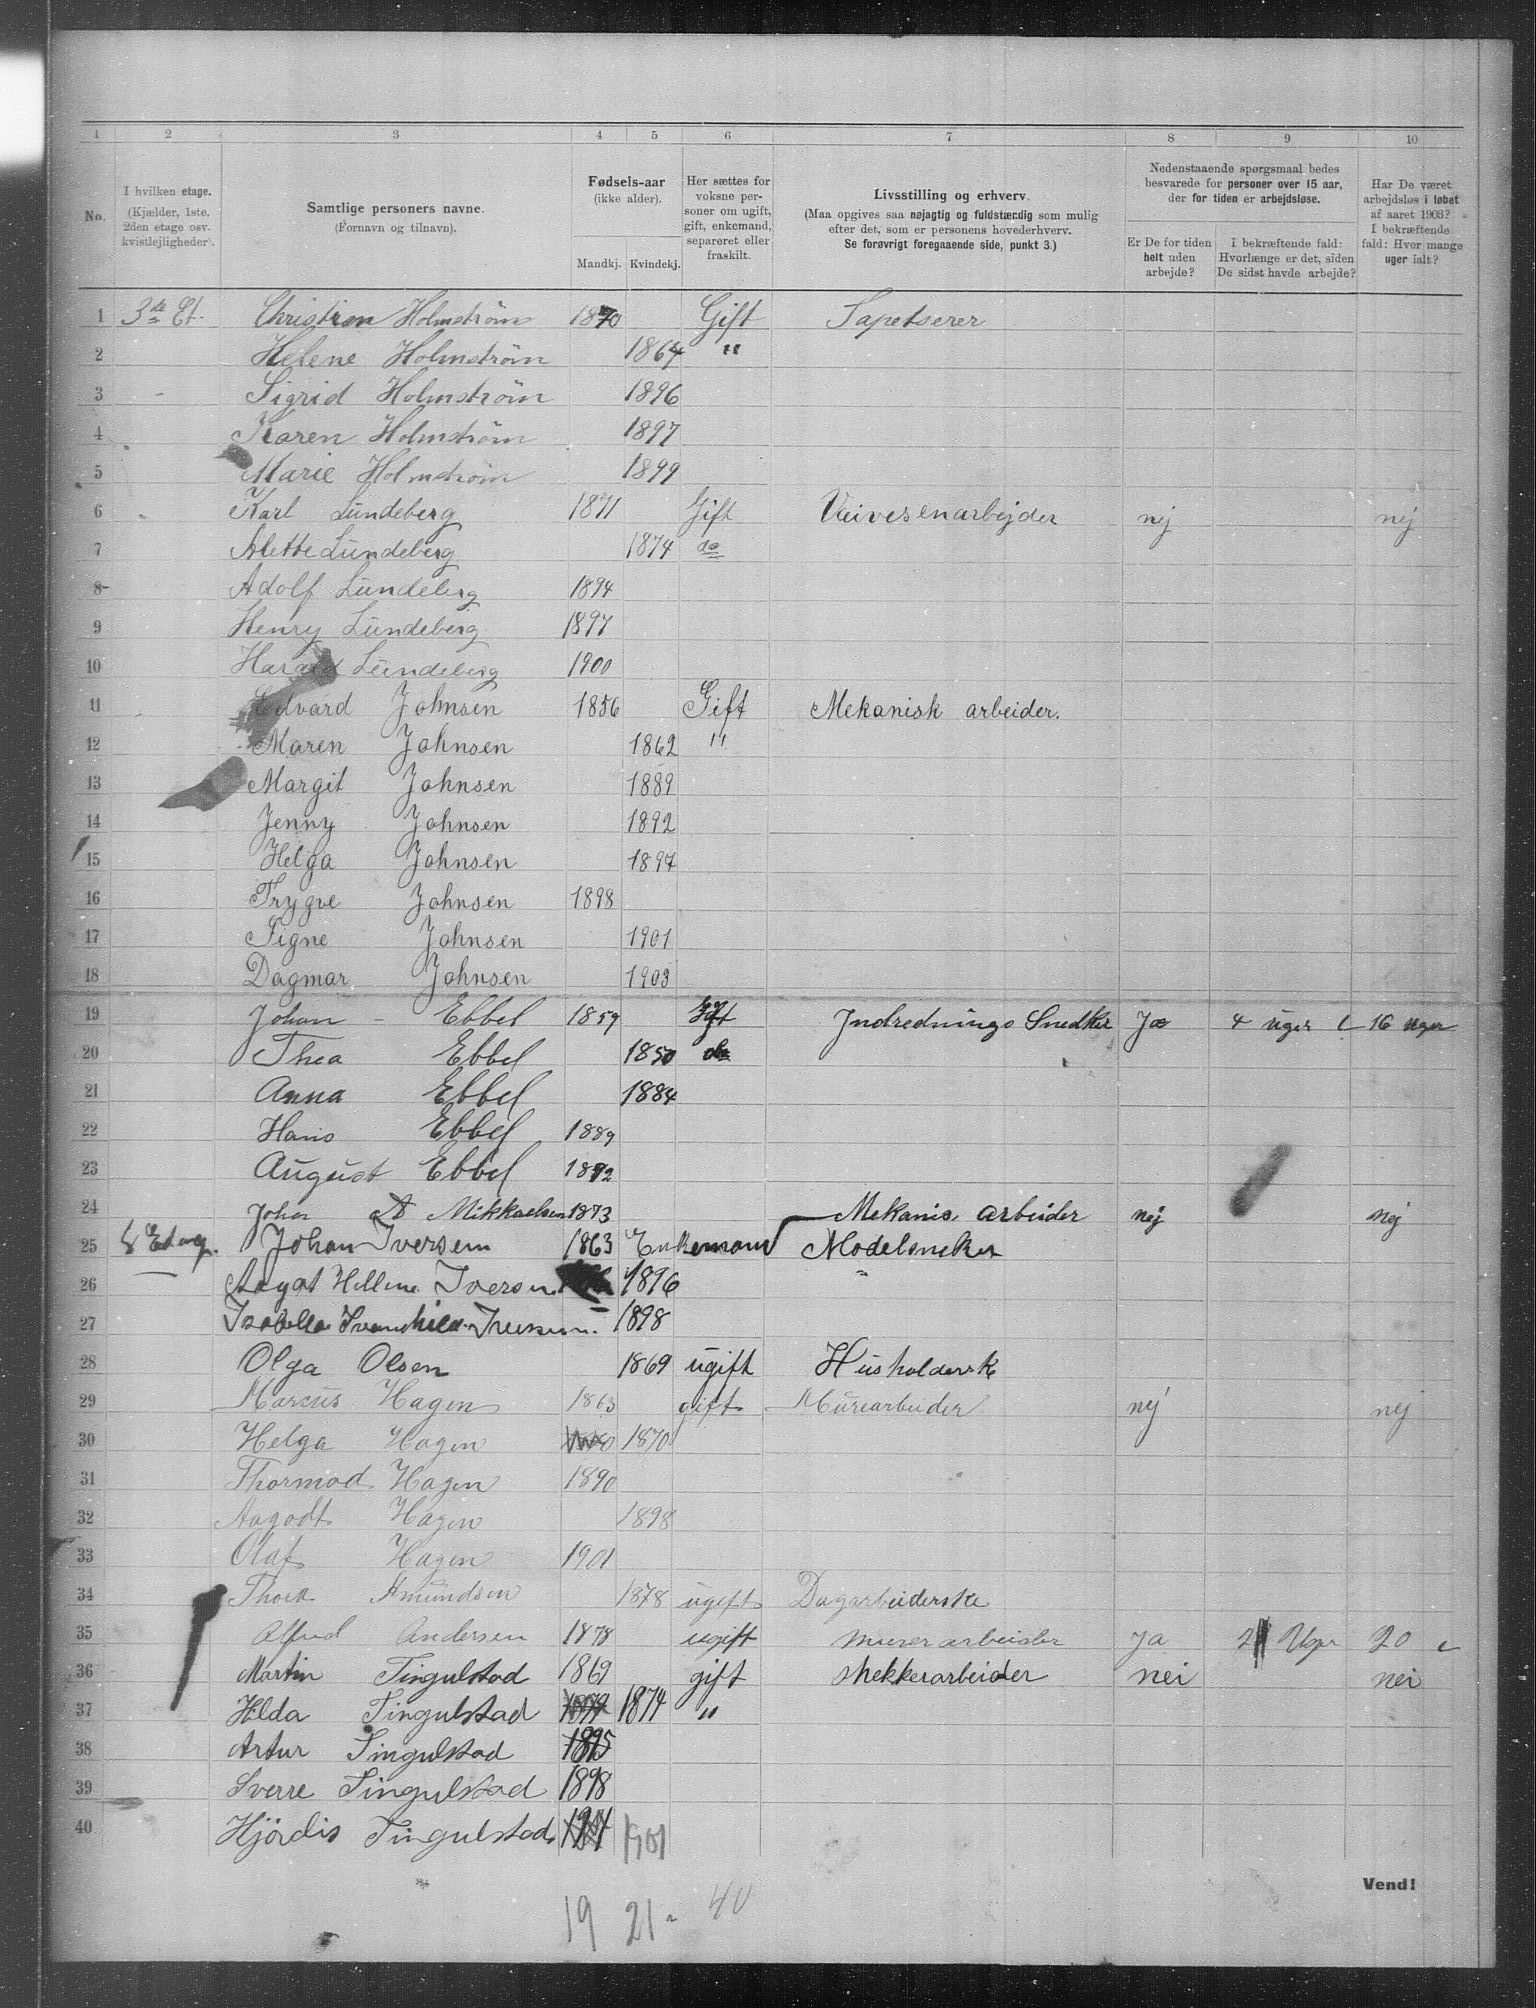 1 2 3 4 5 6 7 8 9 10
No.
I hvilken etage.
(Kjælder, 1ste,
2den etage osv.
kvistlejligheder).
Samtlige personers navne.
(Fornavn og tilnavn).
Fødsels-aar
(ikke alder).
Mandkj. Kvindekj.
Her sættes for
voksne per-
soner om ugift,
gift, enkemand,
separeret eller
fraskilt.
Livsstilling og erhverv.
(Maa opgives saa nøjagtig og fuldstændig som mulig
efter det, som er personens hovederhverv.
Se forøvrigt foregaaende side, punkt 3.)
Nedenstaaende spørgsmaal bedes
besvarede for personer over 15 aar,
der for tiden er arbejdsløse.
Er De for tiden
helt uden
arbejde?
I bekræftende fald:
Hvorlænge er det, siden
De sidst havde arbejde?
Har De været
arbejdsløs i løbet
af aaret 1903?
I bekræftende
fald: Hvor mange
uger ialt?
1 3de Et. Christian Holmström 1870 Gift Tapetserer
2 Helene Holmström 1864 "
3 Sigrid Holmström 1896
4 Karen Holmström 1897
5 Marie Holmström 1899
6 Karl Lundeberg 1871 Gift Veivesenarbejder nej nej
7 Alette Lundeberg 1874 do
8 Adolf Lundeberg 1894
9 Henry Lundeberg 1897
10 Harald Lundeberg 1900
11 Edvard Johnsen 1856 Gift Mekanisk arbeider.
12 Maren Johnsen 1862 "
13 Margit Johnsen 1889
14 Jenny Johnsen 1892
15 Helga Johnsen 1897
16 Trygve Johnsen 1898
17 Signe Johnsen 1901
18 Dagmar Johnsen 1903
19 Johan Ebbel 1859 Gift Indrednings Snedker Ja 4 uger 16 uger
20 Thea Ebbel 1850 do
21 Anna Ebbel 1884
22 Hans Ebbel 1889
23 August Ebbel 1892
24 Johan Mikkaelsen 1873 Mekanis. arbeider nej nej
25 Johan Iversen 1863 Enkemand Modelsneker
26 Aagot Hellene Iversen 1896 "
27 Isabella 1898
28 Olga Olsen 1869 ugift Husholderske
29 Marcus Hagen 1863 gift Murearbeider nej nej
30 Helga Hagen 1870
31 Thormod Hagen 1890
32 Aagodt Hagen 1898
33 Olaf Hagen 1901
34 Thora Amundsen 1878 ugift Dagarbeiderske
35 Alfred Andersen 1878 ugift murerarbeider Ja 2 Uger 20
36 Martin Tingulstad 1869 gift shekkerarbeider nei nei
37 Hilda Tingulstad 1874 "
38 Artur Tingulstad 1895
39 Sverre Tingulstad 1898
40 Hjördis Tingulstad 1901
Vend!
19 21 40